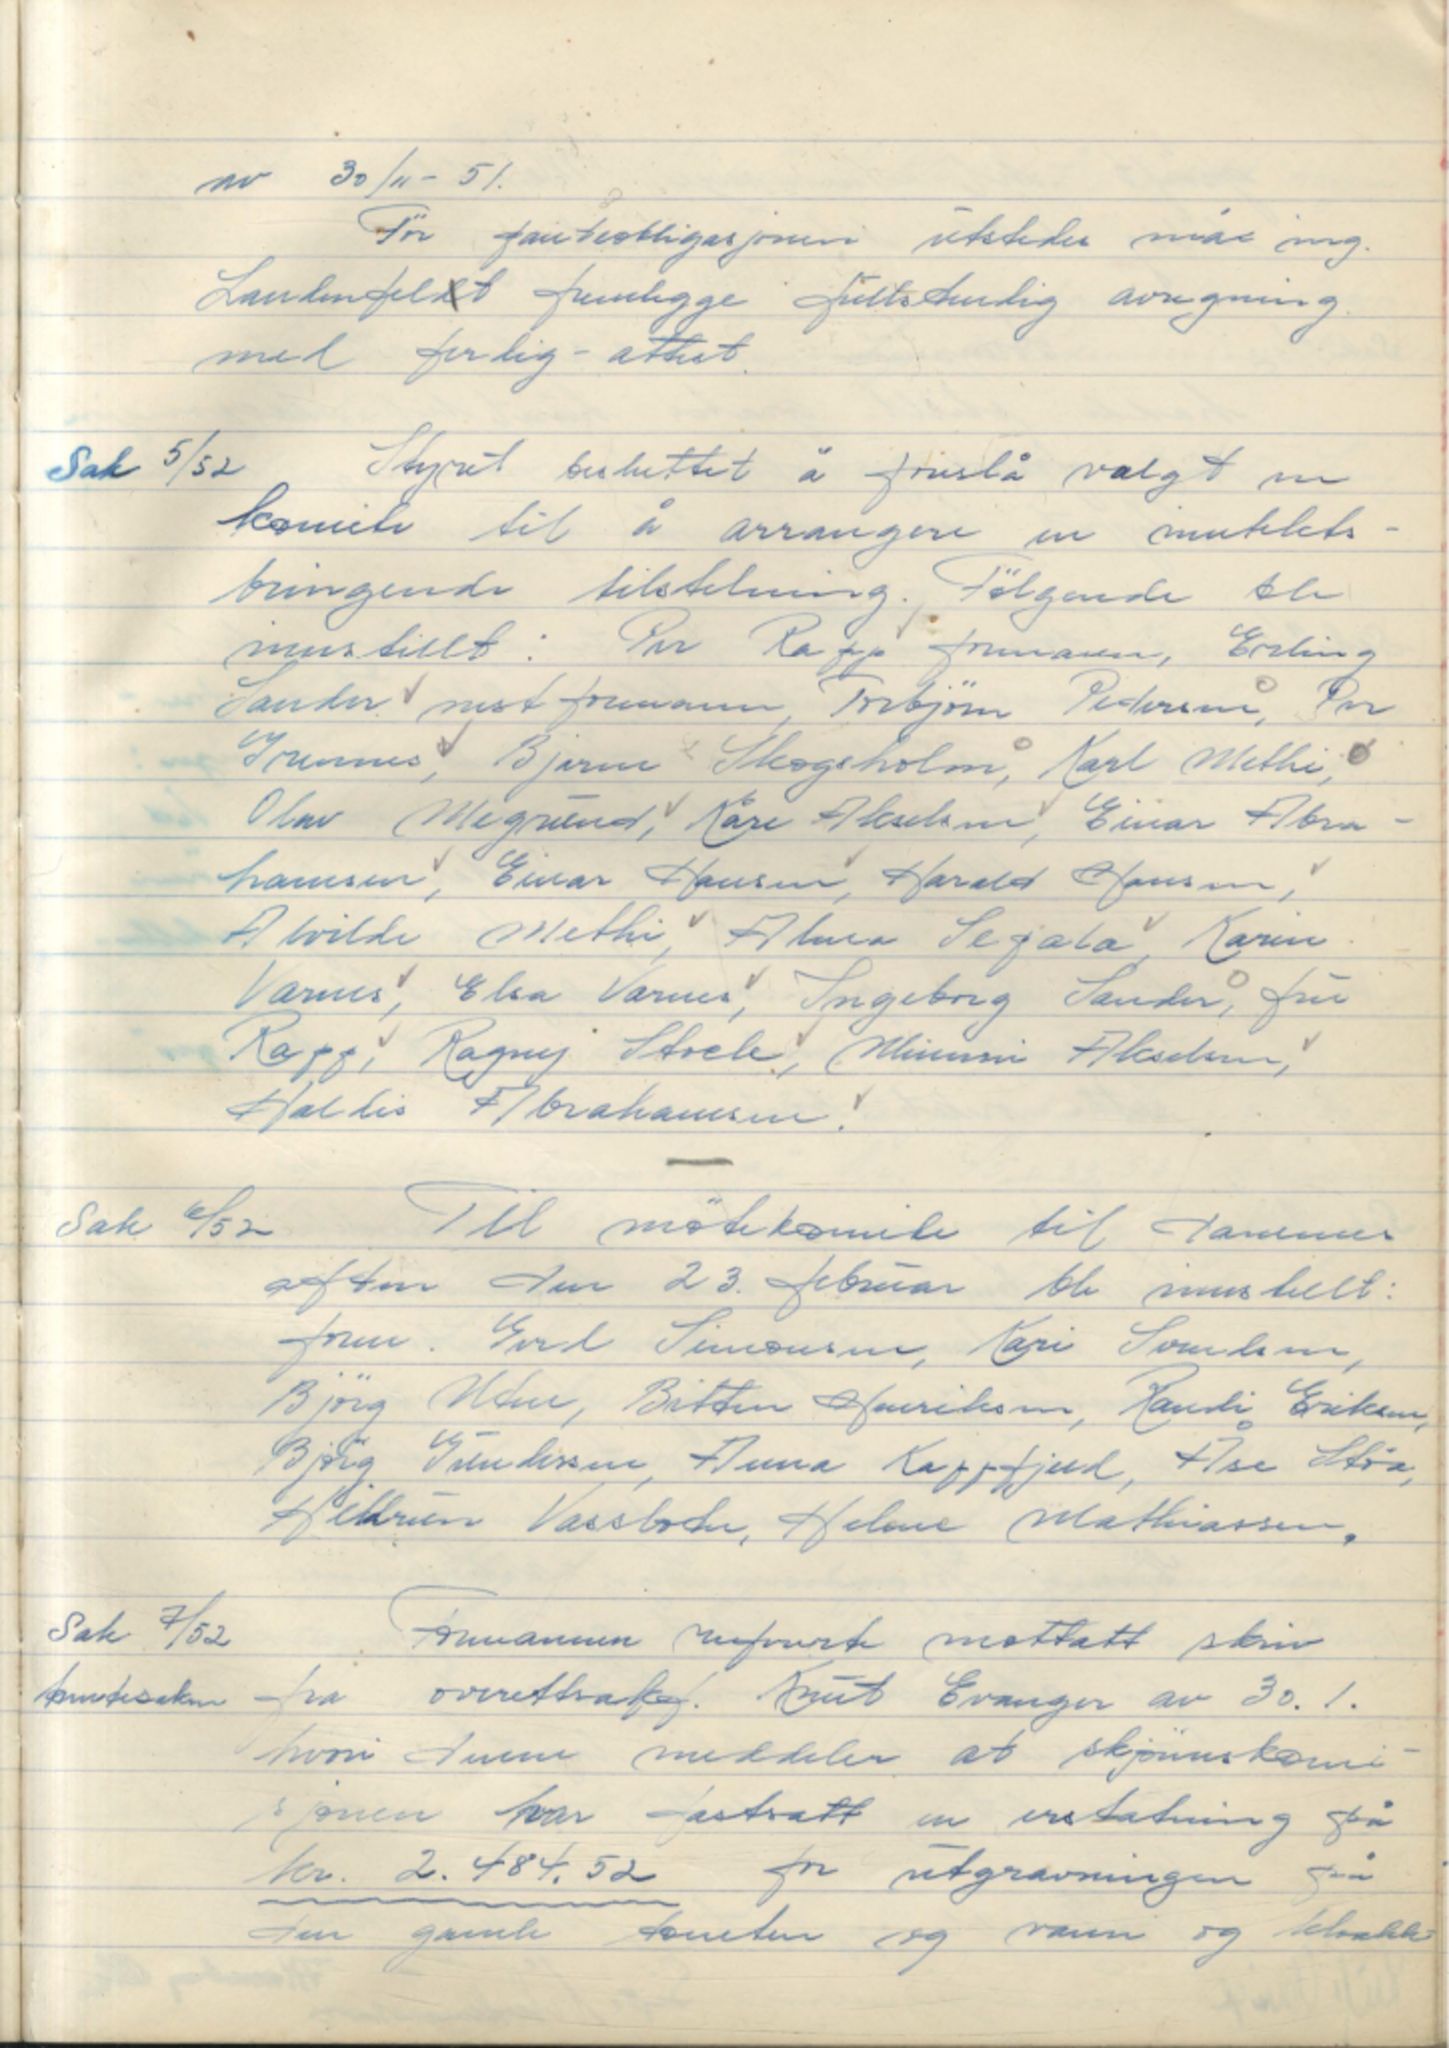 av 30/11-51.
Før panteobligasjonen utstedes må ing.
Landenfeldt fremlegge fullstendig avregning
med ferdig-attest.
Sak 5/52 Styret besluttet å foreslå valgt en
komite til å arrangere en inntekts-
bringende tilstelning. Følgende ble
innstillt: Per Rapp formann, Erling
Sander nestformann, Torbjørn Pedersen, Per
Grennes, Bjarne Skogsholm, Karl Methi,
Olav Megrund, Kåre Akselsen, Einar Abra-
hamsen, Einar Hansen, Harald Hansen,
Alvilde Methi, Alma Segala, Karin
Varnes, Elsa Varnes, Ingeborg Sander, fru
Rapp, Ragny Stoele, Mimmi Akselsen,
Haldis Abrahamsen.
Sak 6/52 Til møtekomite til damenes
aften den 23. februar ble innstillt:
form. Gerd Simonsen, Kari Svendsen,
Bjørg Utne, Bitten Henriksen, Randi Eriksen,
Bjørg Gundersen, Anna Kappfjell, Åse Stöa,
Heldrun Vassbotn, Helene Mathiassen.
Sak 7/52 Formannen refererte mottatt skriv
tomtesaken fra overrettsakf. Knut Evanger av 30.1.
hvori denne meddeler at skjønnskomi-
sjonen har fastsatt en erstatning på
kr. 2.484,52 for utgravningen på
den gamle tomten og vann og kloakk